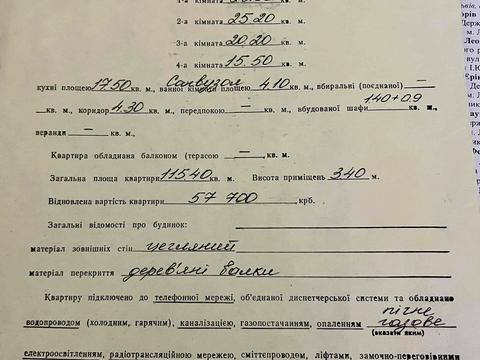 1-а кімната кв. м
2-а кімната 25.20 кв. м
3-а кімната 20.20 кв. м
4-а кімната 15.50 кв. м
кухні площею 17.50 кв. м., ванної кімнати площею Санвузол 4.10 кв. м., вбиральні (поєднаної) —
кв. м., коридор 4.30 кв. м., передпокою — кв. м., вбудованої шафи 140+09 кв. м.,
веранди — кв. м.
Квартира обладнана балконом (терасою — кв. м.
Загальна площа квартири 115.40 кв. м. Висота приміщень 3.40 м.
Відновлена вартість квартири 57 700 крб.
Загальні відомості про будинок:
матеріал зовнішніх стін цегляний
матеріал перекриття дерев'яні балки
Квартиру підключено до телефонної мережі, об'єднаної диспетчерської системи та обладнано
водопроводом (холодним, гарячим), каналізацією, газопостачанням, опаленням пічне газове
(вказати яким)
електроосвітленням, радіотрансляційною мережею, сміттєпроводом, ліфтами, замочно-переговорними